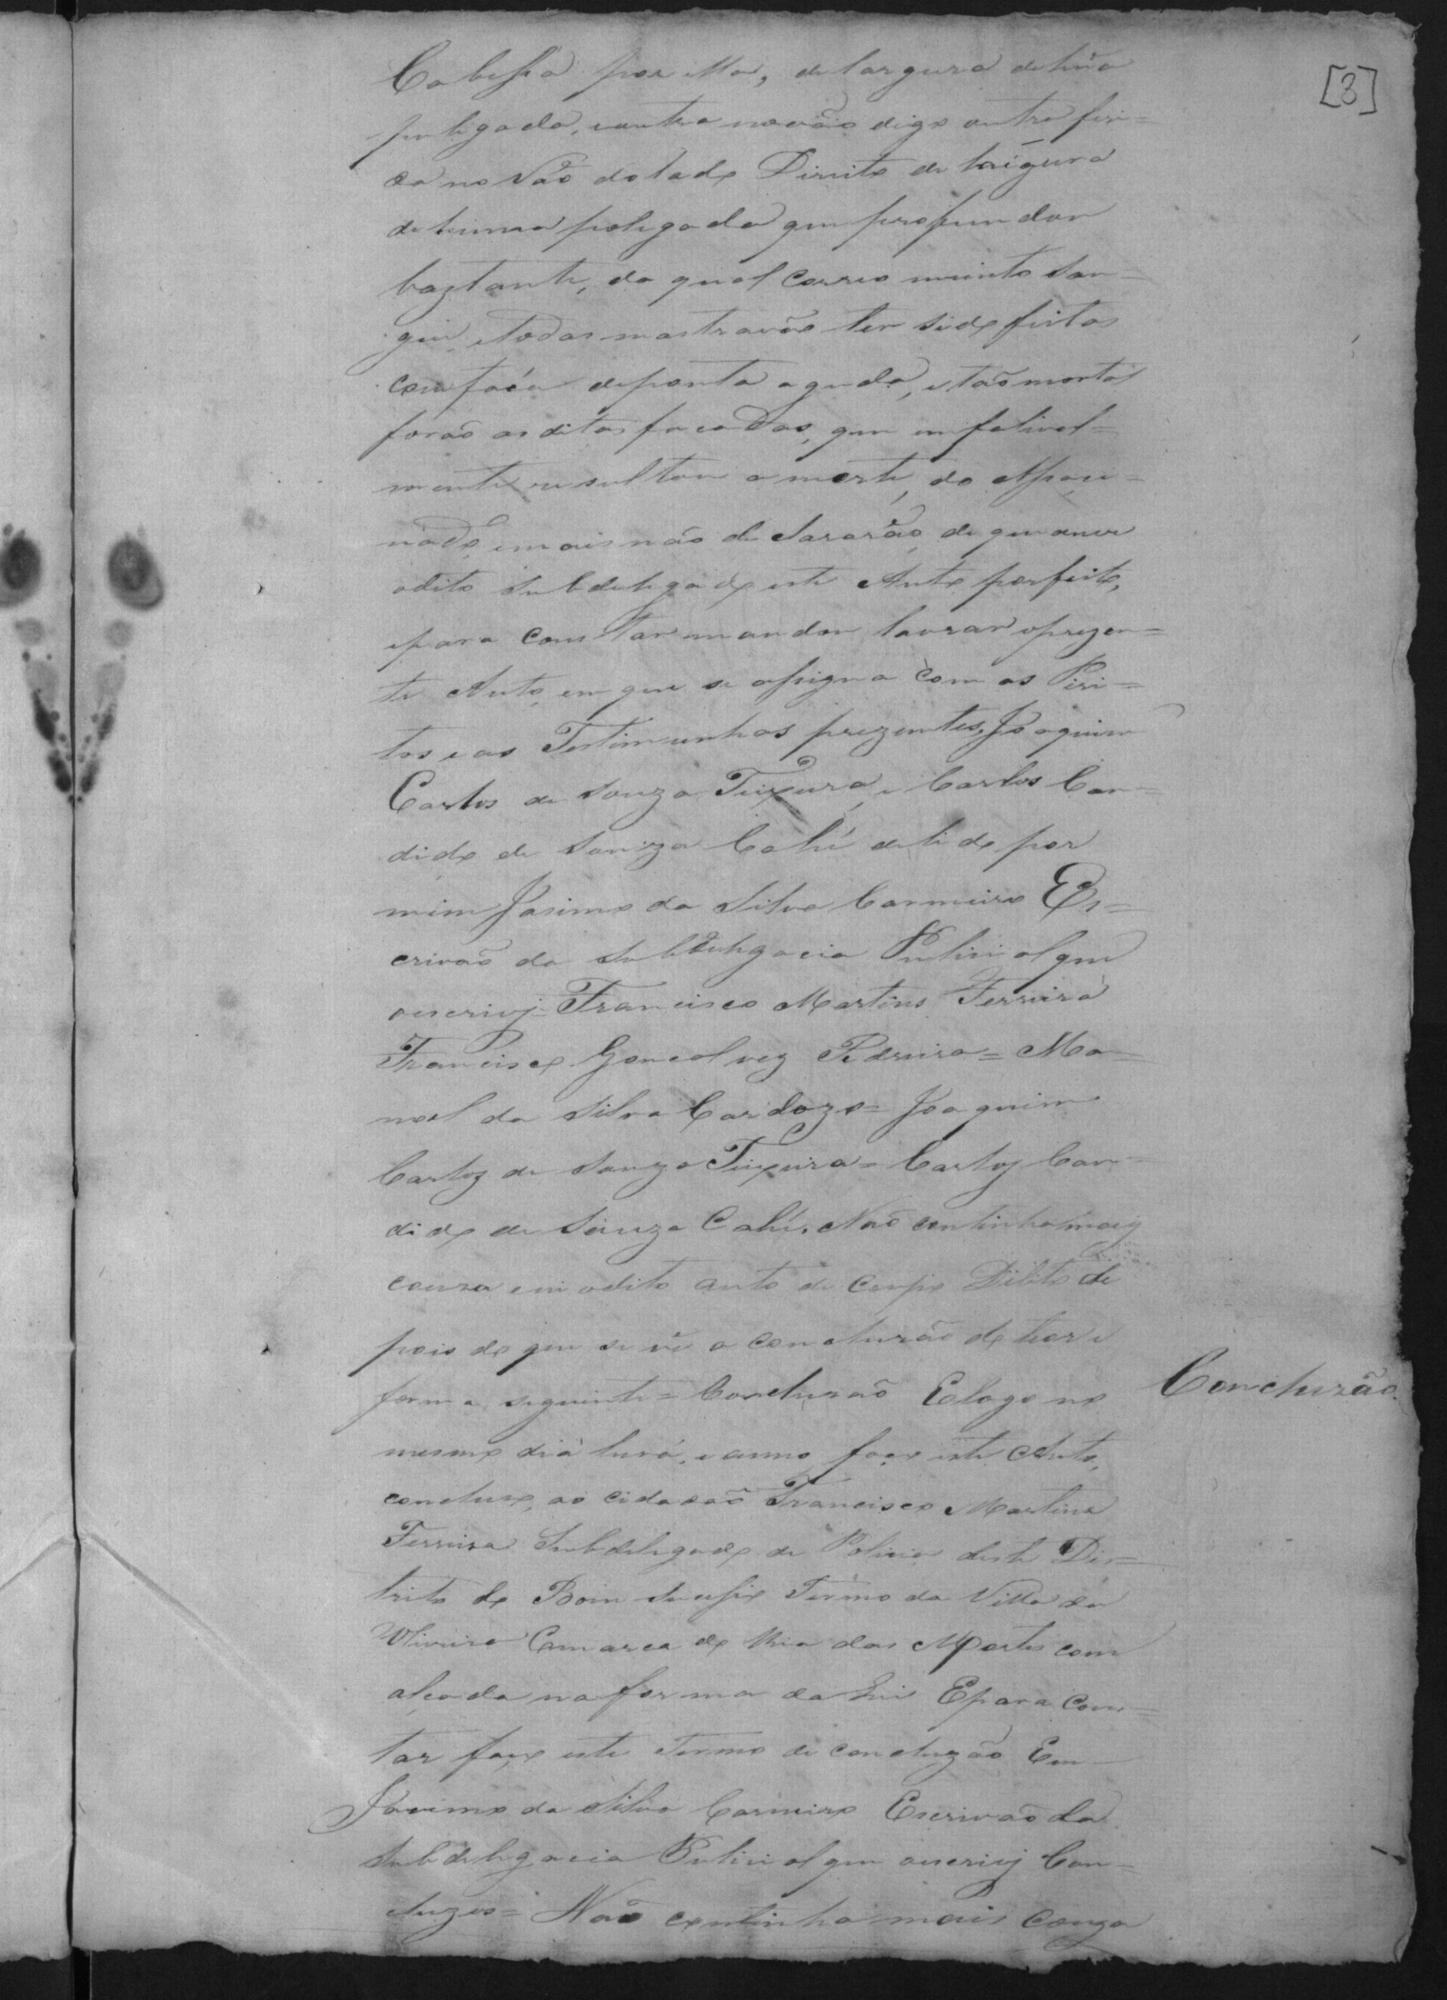 [3]
Cabessa por ella, de largura de hũa
pulegada, e outra no vão digo outra feri=
da no Vão do lado Direito de largura
de huma pulegada que profundou
baztante, da qual correo muinto San=
gue, e todas mostravão ter sido feitas
com faca de ponta aguda, e tão mortaes
forão as ditas facadas, que infalivel=
mente resultou a morte, do Apare=
e mais não declararão, de que ouve
o dito Subdelegado este Auto por feito,
e para constar mandou lavrar o prezen=
te Auto, em que se assigna com os Piri=
tos e as Testimunhas prezentes, Joaquim
Carlos de Souza Teixeira, e Carlos Can=
dido de Souza Cahí e lido por
mim da Silva Carneiro Es=
crivão da Subdelegacia Pulicial que
o escrivj Francisco Martins Ferreira
Francisco Goncalvez Pedreira = Ma=
noel da Silva Cardozo = Joaquim
Carloz de Souza Teixeira = Carloz Can=
dido de Souza Cahí. Não continha maiz
couza em o dito auto de Corpo Dilito de
pois do que se vê a concluzão do theor e
forma seguinte = Concluzão E logo no
Concluzão.
mesmo dia e anno faço este Auto,
concluzo, ao cidadão Francisco Martins
Ferreira Subdelegado de Policia deste Dis=
trito do Bom Sucesso Termo da Villa da
Oliveira Comarca do Rio das Mortes com
alçada na forma da Lei E para Cons=
tar faço este Termo de concluzão Eu
da Silva Carneiro Escrivão da
Subdelegacia Pulicial que o escrivj Con=
cluzos = Não continha mais Couza